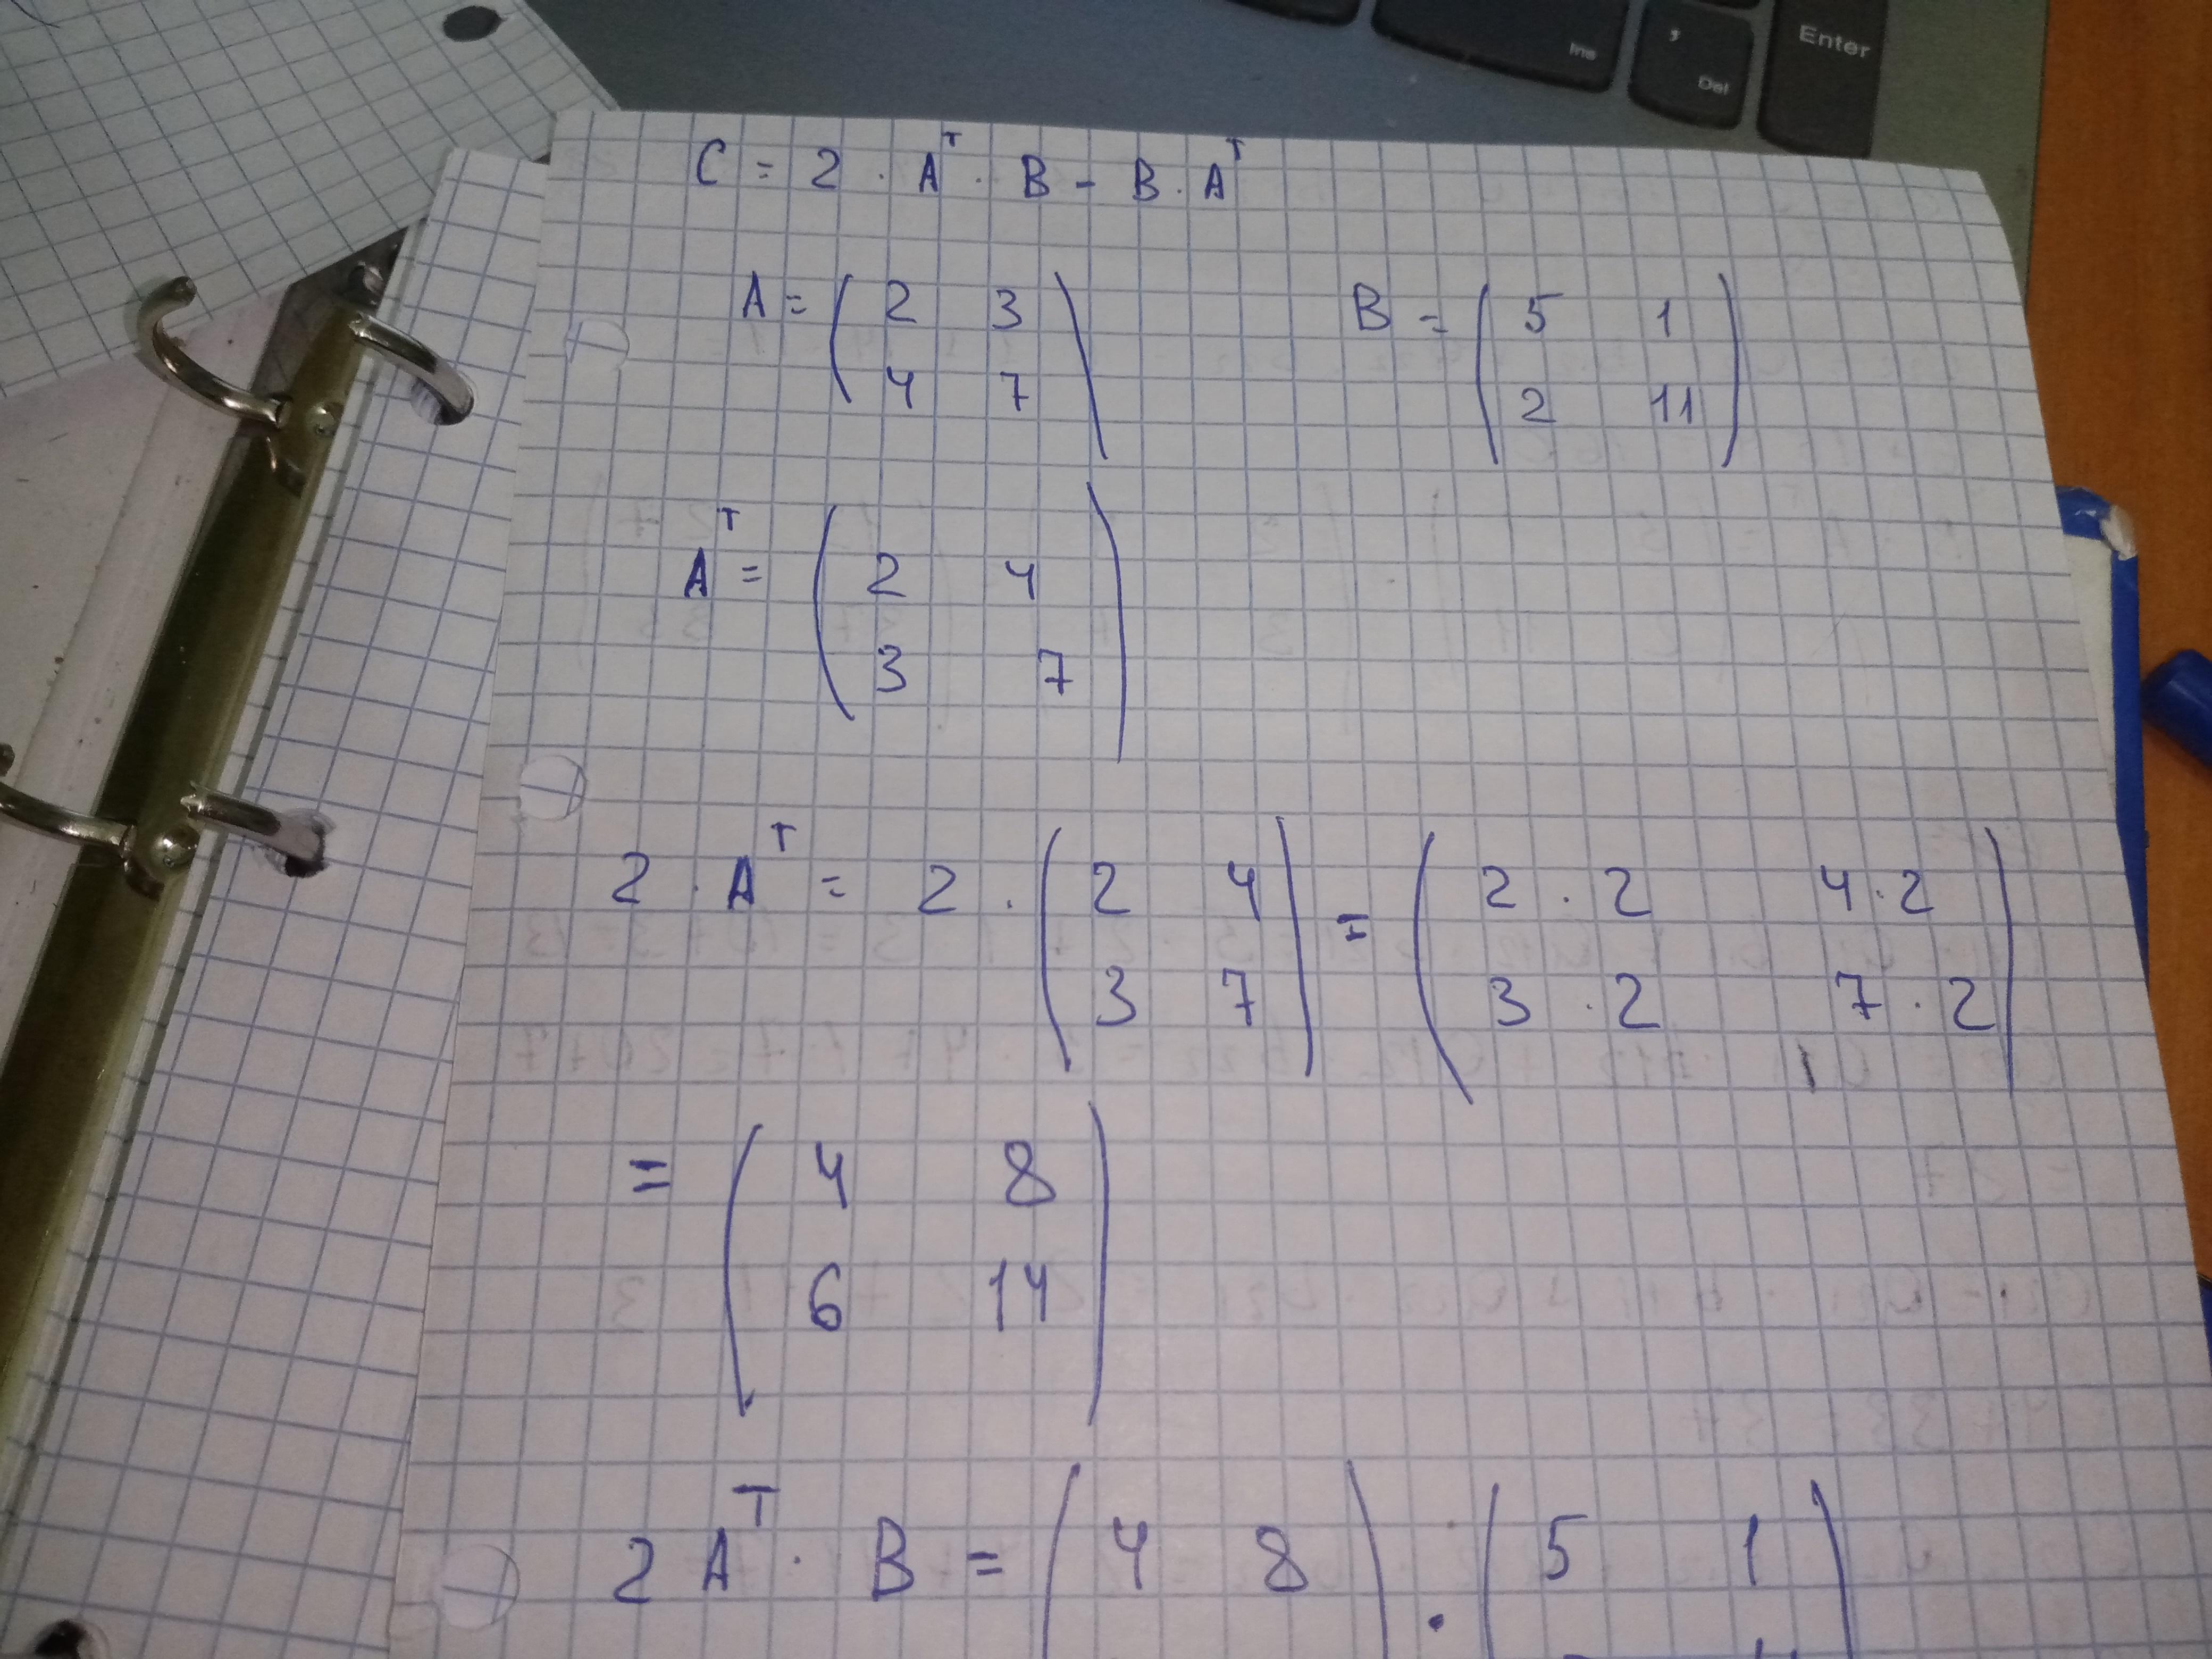 Ins
,
Del
Enter
C = 2 · Aᵀ · B - B · Aᵀ
A = ( 2 3 ) B = ( 5 1 )
4 7 2 11
Aᵀ = ( 2 4 )
3 7
2 · Aᵀ = 2 · ( 2 4 ) = ( 2 · 2 4 · 2 )
3 7 3 · 2 7 · 2
= ( 4 8 )
6 14
2 Aᵀ · B = ( 4 8 ) · ( 5 1 )